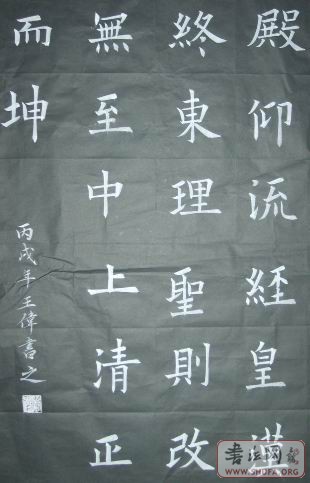 殿仰流經皇
終東理聖則改
無至中上清正
而坤
丙戌年王偉書之
WWW.SHUFA.ORG